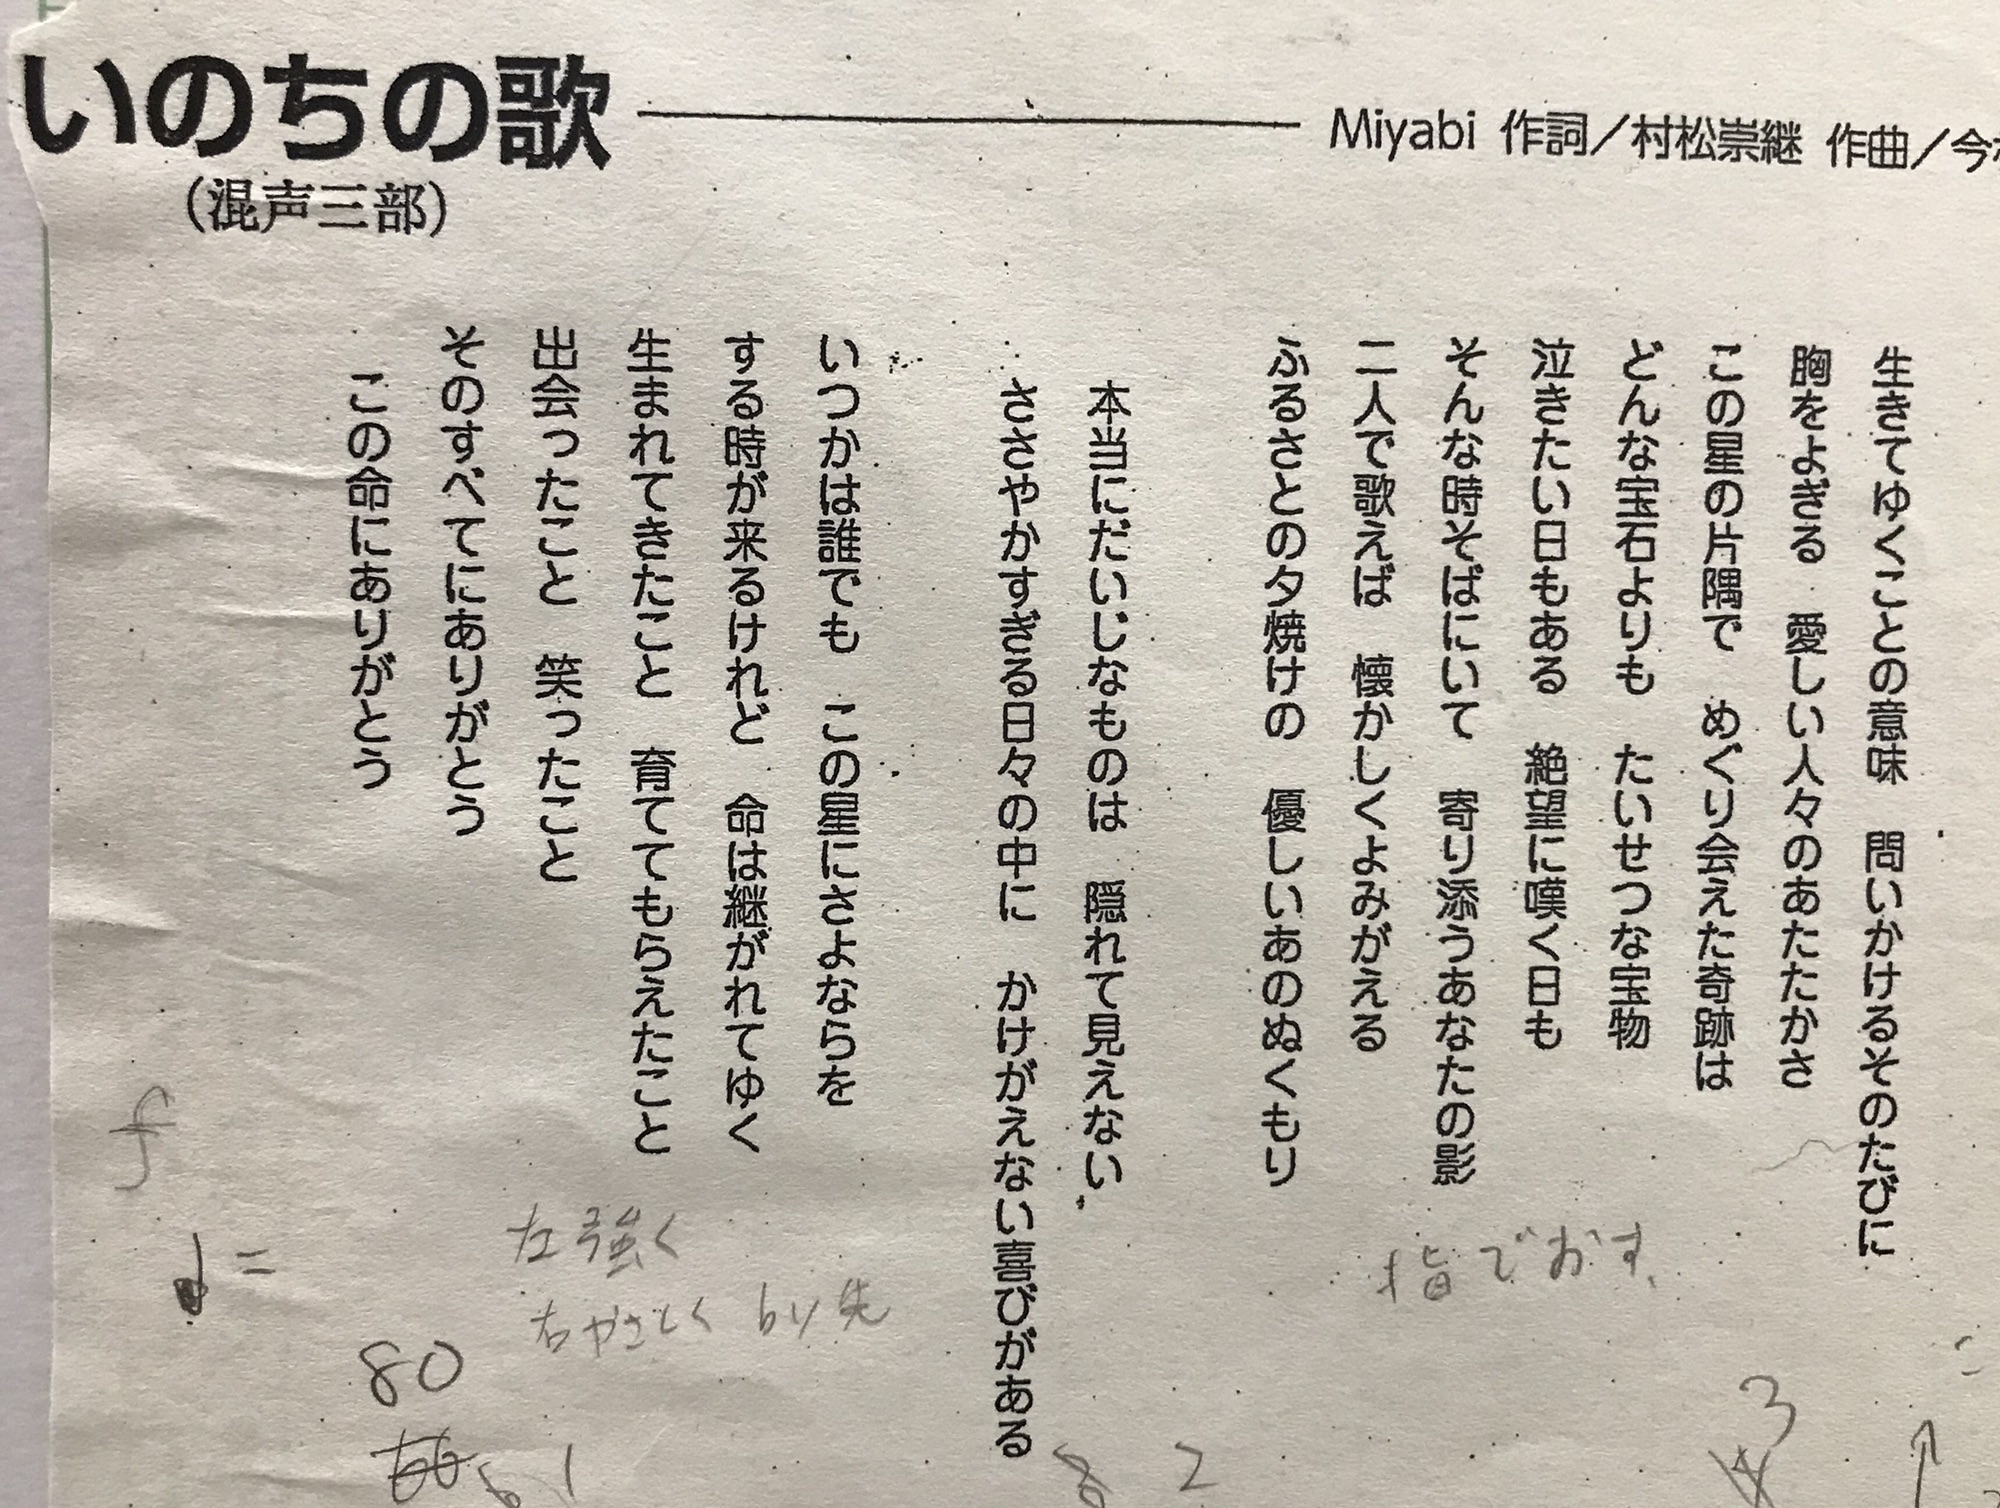 いのちの歌
(混声三部)
Miyabi 作詞/村松崇継 作曲/今
生きてゆくことの意味 問いかけるそのたびに
胸をよぎる 愛しい人々のあたたかさ
この星の片隅で めぐり会えた奇跡は
どんな宝石よりも たいせつな宝物
泣きたい日もある 絶望に嘆く日も
そんな時そばにいて 寄り添うあなたの影
二人で歌えば 懐かしくよみがえる
ふるさとの夕焼けの 優しいあのぬくもり
本当にだいじなものは 隠れて見えない
ささやかすぎる日々の中に かけがえない喜びがある
いつかは誰でも この星にさよならを
する時が来るけれど 命は継がれてゆく
生まれてきたこと 育ててもらえたこと
出会ったこと 笑ったこと
そのすべてにありがとう
この命にありがとう
指でおす
左強く
右やさしく by 先
f
♩=
80
66
6 1
8 2
3
4
↑